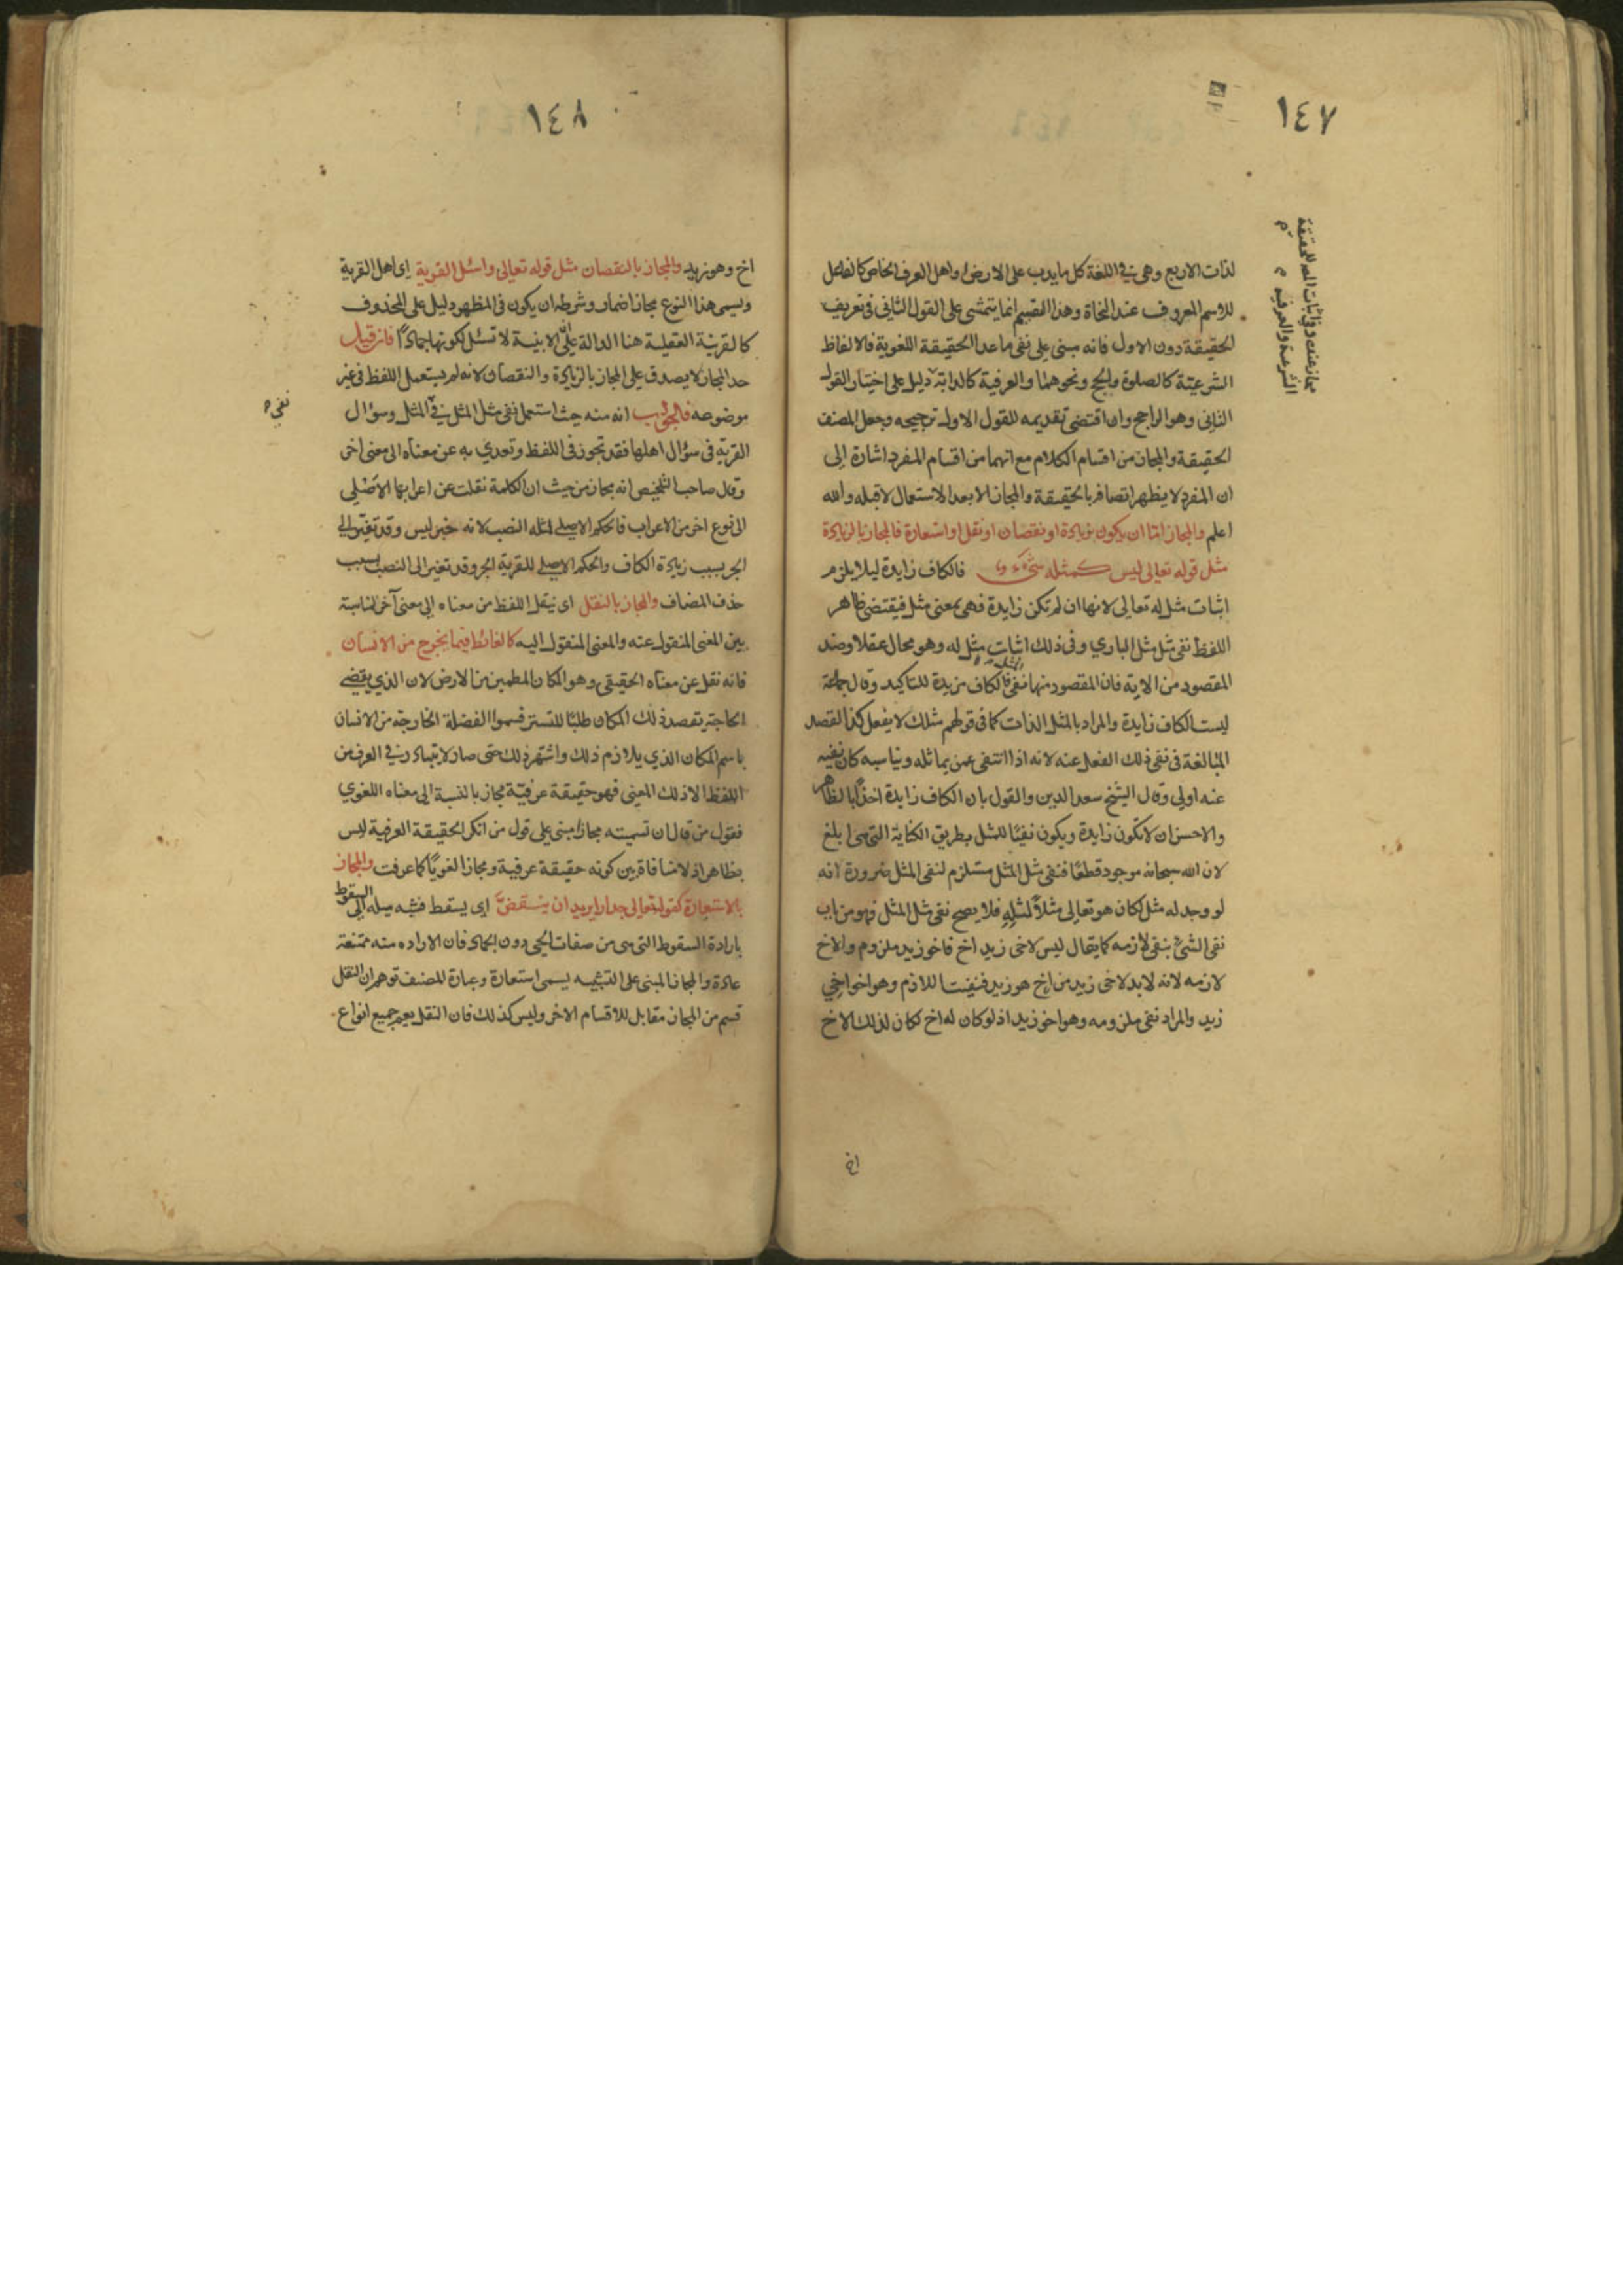 ١٤٧
لذات الاربع وهي في اللغة كل ما يدب على الارض واهل العرف الخاص كالفاعل
للاسم المعروف عند النحاة وهذا التقسيم انما يتمشى على القول الثاني في تعريف
الحقيقة دون الاول فانه مبني على نفي ما عدا الحقيقة اللغوية فالالفاظ
الشرعية كالصلوة والحج ونحوهما والعرفية كالدابة دليل على اختيار القول
الثاني وهو الراجح وان اقتضى تقديمه للقول الاول ترجيحه وجعل المصنف
الحقيقة والمجاز من اقسام الكلام مع انهما من اقسام المفرد اشارة الى
ان المفرد لا يظهر اتصافه بالحقيقة والمجاز الا بعد الاستعمال لا قبله والله
اعلم والمجاز اما ان يكون بزيادة او نقصان او نقل او استعارة فالمجاز بالزيادة
مثل قوله تعالى ليس كمثله شيء فالكاف زايدة ليلا يلزم
اثبات مثل له تعالى لانها ان لم تكن زايدة فهي بمعنى مثل فيقتضي ظاهر
اللفظ نفي مثل مثل الباري وفي ذلك اثبات مثل له وهو محال عقلا وضد
المقصود من الاية فان المقصود منها نفي المثل فالكاف مزيدة للتاكيد وقال جماعة
ليست الكاف زايدة والمراد بالمثل الذات كما في قولهم مثلك لا يفعل كذا لقصد
المبالغة في نفي ذلك الفعل عنه لانه اذا انتفى عمن يماثله ويناسبه كان نفيه
عنه اولى وقال الشيخ سعد الدين والقول بان الكاف زايدة اخذا بالظاهر
والاحسن ان لا تكون زايدة ويكون نفيا للمثل بطريق الكناية التي هي ابلغ
لان الله سبحانه موجود قطعا فنفي مثل المثل مستلزم لنفي المثل ضرورة انه
لو وجد له مثل لكان هو تعالى مثلا لمثله فلا يصح نفي مثل المثل فهو من باب
نفي الشيء بنفي لازمه كما يقال ليس لاخي زيد اخ فاخو زيد ملزوم والاخ
لازمه لانه لا بد لاخي زيد من اخ هو زيد فنفيت اللازم وهو اخو اخي
زيد والمراد نفي ملزومه وهو اخو زيد اذ لو كان له اخ لكان لذلك الاخ
اخ
١٤٨
اخ وهو زيد والمجاز بالنقصان مثل قوله تعالى واسئل القرية اى اهل القرية
ويسمى هذا النوع مجاز اضمار وشرطه ان يكون في المظهر دليل على المحذوف
كالقرينة العقلية هنا الدالة على ان الابنية لا تسئل لكونها جمادا فان قيل
حد المجاز لا يصدق على المجاز بالزيادة والنقصان لانه لم يستعمل اللفظ في غير
موضوعه فالجواب انه منه حيث استعمل نفي مثل المثل في المثل وسؤال
نفي
القرية في سؤال اهلها فقد تجوز في اللفظ وتعدي به عن معناه الى معنى اخر
وقال صاحب التلخيص انه مجاز من حيث ان الكلمة نقلت عن اعرابها الاصلي
الى نوع اخر من الاعراب فالحكم الاصلي لمثله النصب لانه خبر ليس وقد تغير الى
الجر بسبب زيادة الكاف والحكم الاصلي للقرية الجر وقد تغير الى النصب بسبب
حذف المضاف والمجاز بالنقل اى بنقل اللفظ من معناه الى معنى آخر لمناسبة
بين المعنى المنقول عنه والمعنى المنقول اليه كالغائط فيما يخرج من الانسان
فانه نقل عن معناه الحقيقي وهو المكان المطمئن من الارض لان الذي يقضي
الحاجة يقصد ذلك المكان طلبا للتستر فسموا الفضلة الخارجة من الانسان
باسم المكان الذي يلازم ذلك واشتهر ذلك حتى صار لا يتبادر في العرف من
اللفظ الا ذلك المعنى فهو حقيقة عرفية مجاز بالنسبة الى معناه اللغوي
فقول من قال ان تسميته مجازا مبني على قول من انكر الحقيقة العرفية ليس
بظاهر اذ لا منافاة بين كونه حقيقة عرفية ومجازا لغويا كما عرفت والمجاز
بالاستعارة كقوله تعالى جدارا يريد ان ينقض اى يسقط فشبه ميله الى السقوط
بارادة السقوط التي هي من صفات الحي دون الجماد فان الاراده منه ممتنعة
عادة والمجاز المبني على التشبيه يسمى استعارة وعبارة المصنف توهم ان النقل
قسم من المجاز مقابل للاقسام الاخر وليس كذلك فان النقل يعم جميع انواع